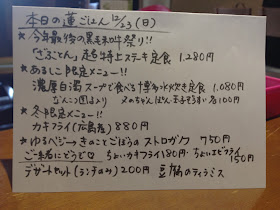 本日の蓮ごはん 12/23(日)
☆今年最後の黒毛和牛祭り!!
「ざぶとん」超特上ステーキ定食 1,280円
☆あるしこ限定メニュー!!
濃厚白湯スープで食べる博多水炊き定食 1,080円
なんこつ団子より 〆のちゃんぽん玉子ぞうすい各100円
☆冬限定メニュー!!
カキフライ(広島産) 880円
☆ゆるベジ〜きのことごぼうのストロガノフ 750円
ご一緒にどうぞ♡ ちょいカキフライ180円・ちょいエビフライ150円
デザートセット(ランチのみ)200円 豆腐のティラミス